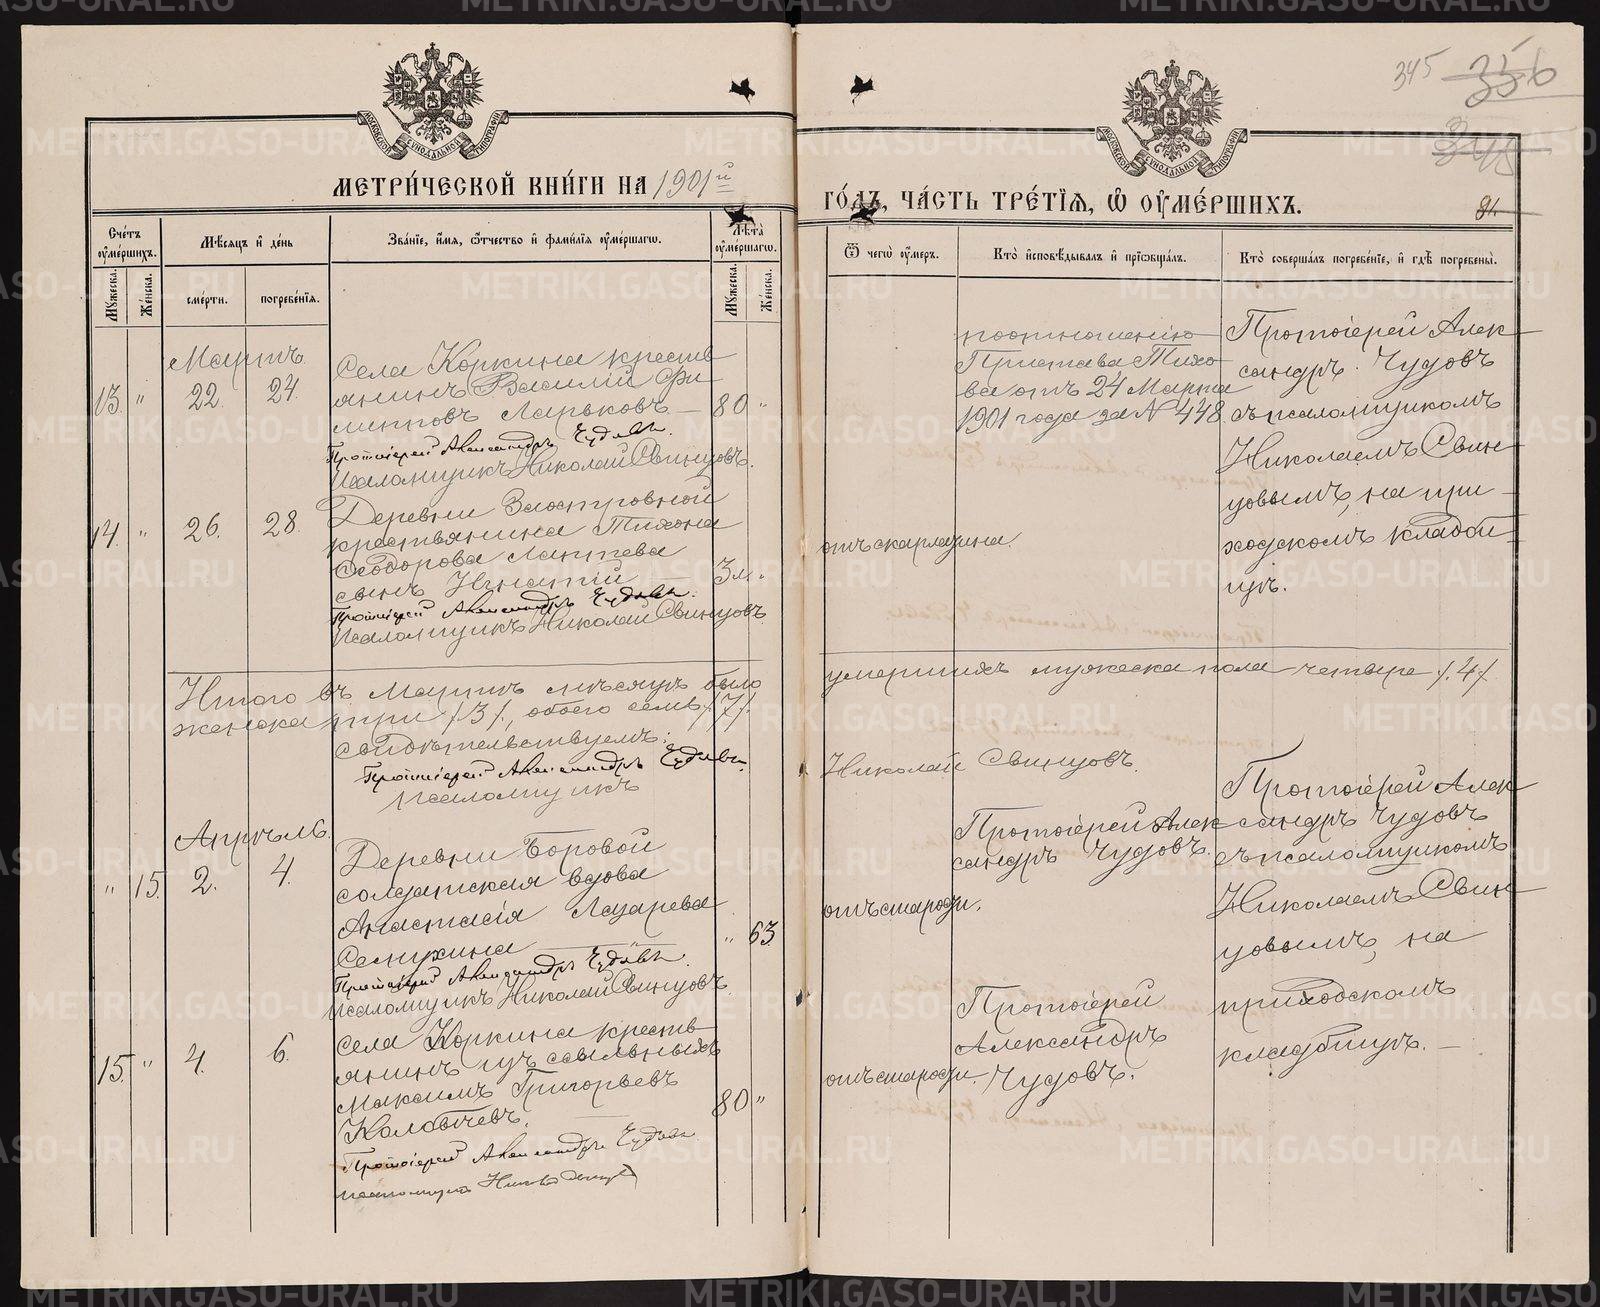 345 356
345
МОСКОВСКОЙ СѴНОДАЛЬНОЙ ТИПОГРАФІИ
МОСКОВСКОЙ СѴНОДАЛЬНОЙ ТИПОГРАФІИ
МЕТРИ́ЧЕСКОЙ КНИ́ГИ НА 1901й
ГО́ДЪ, ЧА́СТЬ ТРЕ́ТІѦ, Ѽ ОУМЕ́РШИХЪ.
91.
Сче́тъ оумѐршихъ.
Мꙋжеска. Же́нска.
Мѣ́сѧцъ и҆ де́нь
сме́рти. погребе́нїѧ.
Зва́нїе, и҆́мѧ, ѻ҆́тчество и҆ фами́лїѧ оумѐршагѡ.
Лѣ́та оумѐршагѡ.
Мꙋжеска. Же́нска.
Ѿ чегѡ̀ оу҆́меръ.
Кто̀ и҆сповѣ́дывалъ и҆ прїѡбща́лъ.
Кто̀ соверша́лъ погребе́нїе, и҆ гдѣ̀ погребены̀.
Мартъ
13. " 22. 24.
Села Коркина кресть
янинъ Василій Фи
липповъ Ларьковъ — 80 "
Протоіерей Александръ Чудовъ.
Псаломщикъ Николай Свинцовъ.
по отношенію
Пристава Тихо
ва отъ 24 Марта
1901 года за № 448.
Протоіерей Алек
сандръ Чудовъ
съ псаломщикомъ
Николаемъ Свин
цовымъ, на при
ходскомъ кладби
щѣ.
14. " 26. 28.
Деревни Заостровной
крестьянина Тихона
Ѳеодорова Лаптева
сынъ Игнатій 3 м. "
Протоіерей Александръ Чудовъ.
Псаломщикъ Николай Свинцовъ
отъ скарлатина.
Итого въ Мартѣ мѣсяцѣ было
умершихъ мужеска пола четыре /.4./
женска три /.3./, обоего семь /.7./
свидѣтельствуемъ:
Протоіерей Александръ Чудовъ.
Псаломщикъ
Николай Свинцовъ.
Апрѣль
" 15. 2. 4.
Деревни Боровой
солдатская вдова
Анастасія Лазарева
Семухина " 63
Протоіерей Александръ Чудовъ.
Псаломщикъ Николай Свинцовъ.
отъ старости.
Протоіерей Алек
сандръ Чудовъ.
Протоіерей Алек
сандръ Чудовъ
съ псаломщикомъ
Николаемъ Свин
цовымъ, на
приходскомъ
кладбищѣ. —
15. " 4. 6.
Села Коркина кресть
янинъ изъ ссыльныхъ
Максимъ Григорьевъ
Коловичевъ. 80 "
Протоіерей Александръ Чудовъ
отъ старости.
Протоіерей
Александръ
Чудовъ.
METRIKI.GASO-URAL.RU